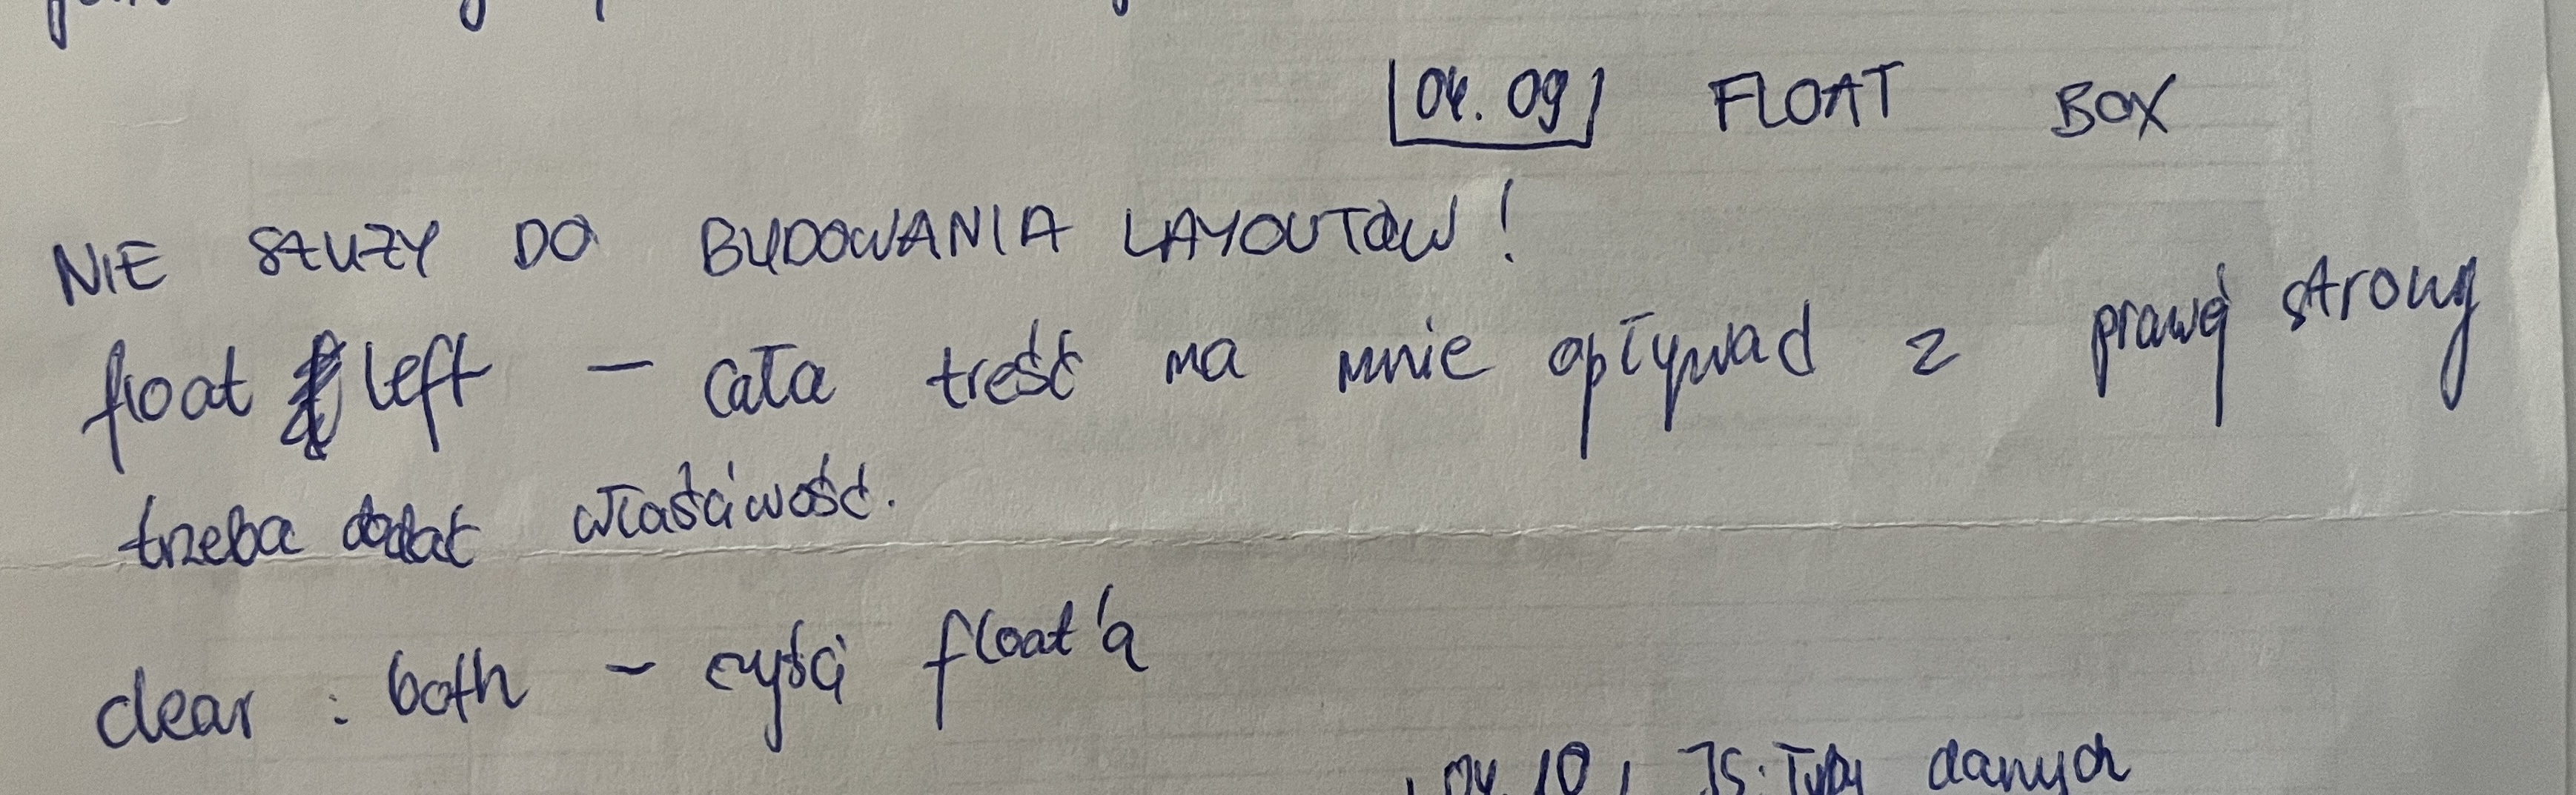 04.09 FLOAT BOX
NIE SŁUŻY DO BUDOWANIA LAYOUTÓW!
float left - cała treść ma mnie opływać z prawej strony
trzeba dodać właściwość.
clear : both - czyści float'a
04.10 JS: Typy danych